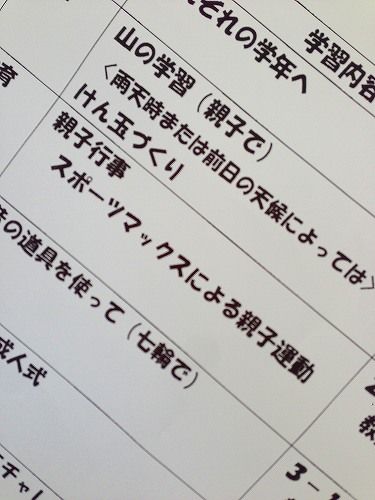 学習内容
それの学年へ
山の学習（親子で）
＜雨天時または前日の天候によっては＞
けん玉づくり
親子行事
スポーツマックスによる親子運動
育
の道具を使って（七輪で）
成人式
チャレ
3－